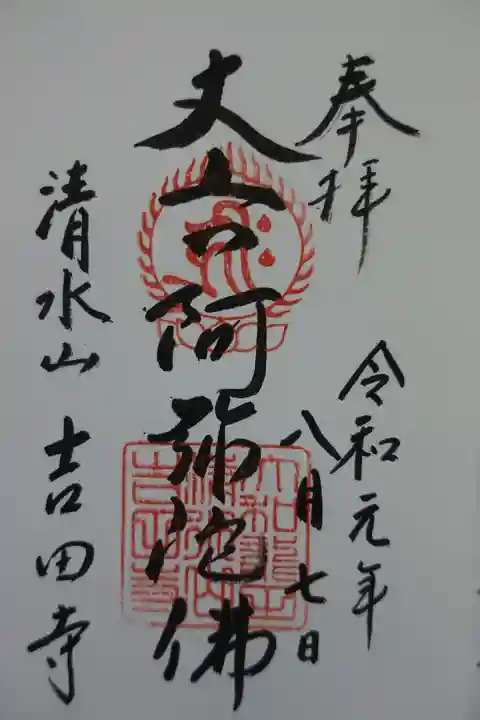 奉拝
令和元年
八月七日
丈六阿弥陀佛
清水山 吉田寺